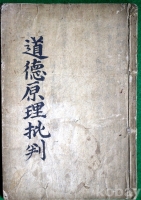 道德原理批判
kobay